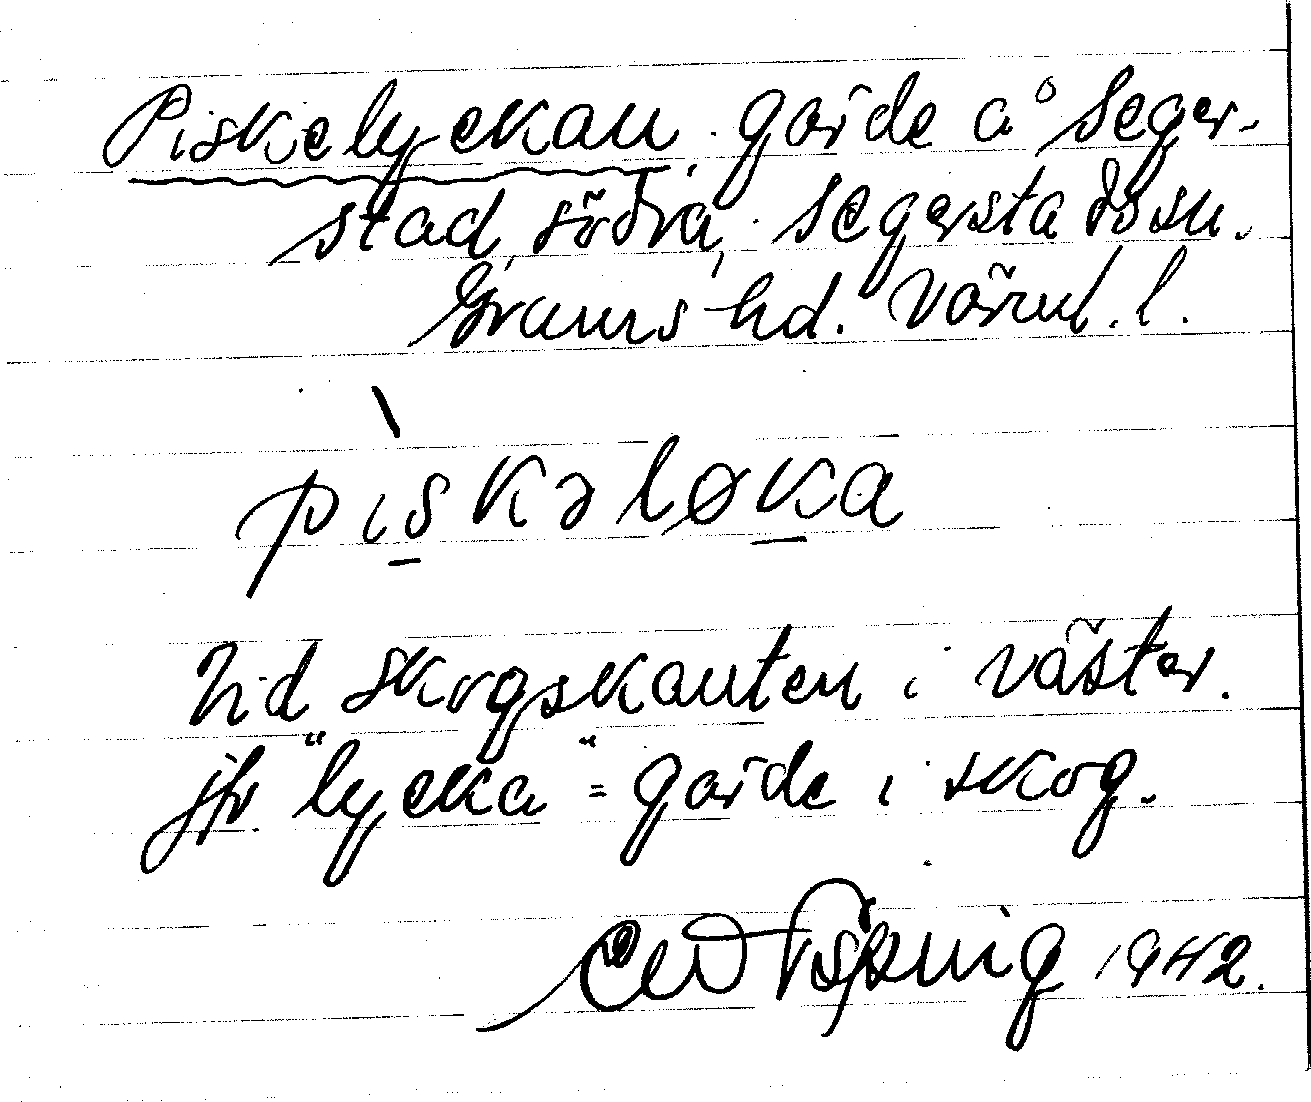 Piskelyckan. gärde å Seger-
stad, södra, Segerstads sn.
Grums hd. Värml. l.
pìskəløka
Vid skogskanten i väster.
jfr "lycka" = gärde i skog.
1942.